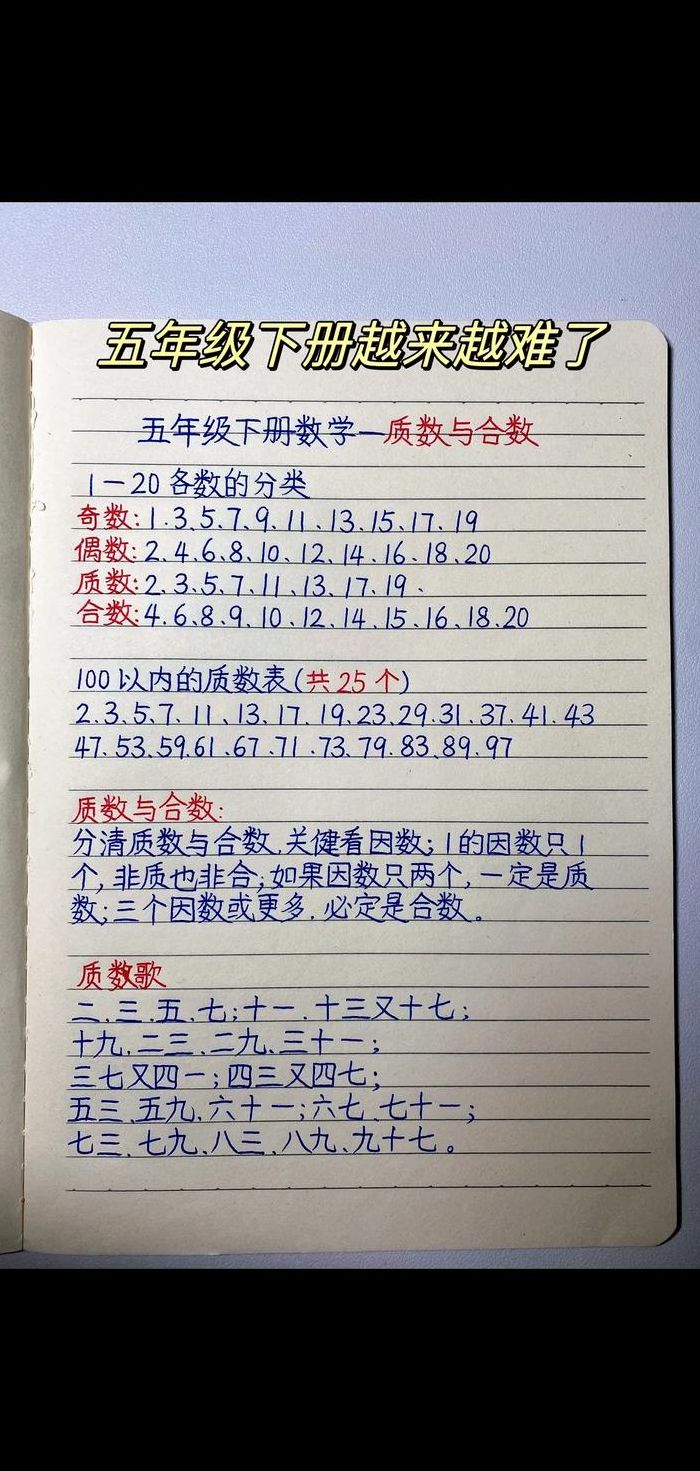 五年级下册越来越难了
五年级下册数学—质数与合数
1—20各数的分类
奇数:1.3、5、7、9、11、13、15、17、19
偶数:2、4、6、8、10、12、14、16、18、20
质数:2、3、5、7、11、13、17、19、
合数:4、6、8、9、10、12、14、15、16、18、20
100以内的质数表(共25个)
2、3、5、7、11、13、17、19、23、29、31、37、41、43
47、53、59、61、67、71、73、79、83、89、97
质数与合数:
分清质数与合数,关健看因数;1的因数只1
个,非质也非合;如果因数只两个,一定是质
数;三个因数或更多,必定是合数。
质数歌
二、三、五、七;十一、十三又十七;
十九、二三、二九、三十一;
三七又四一;四三又四七;
五三、五九、六十一;六七、七十一;
七三、七九、八三、八九、九十七。